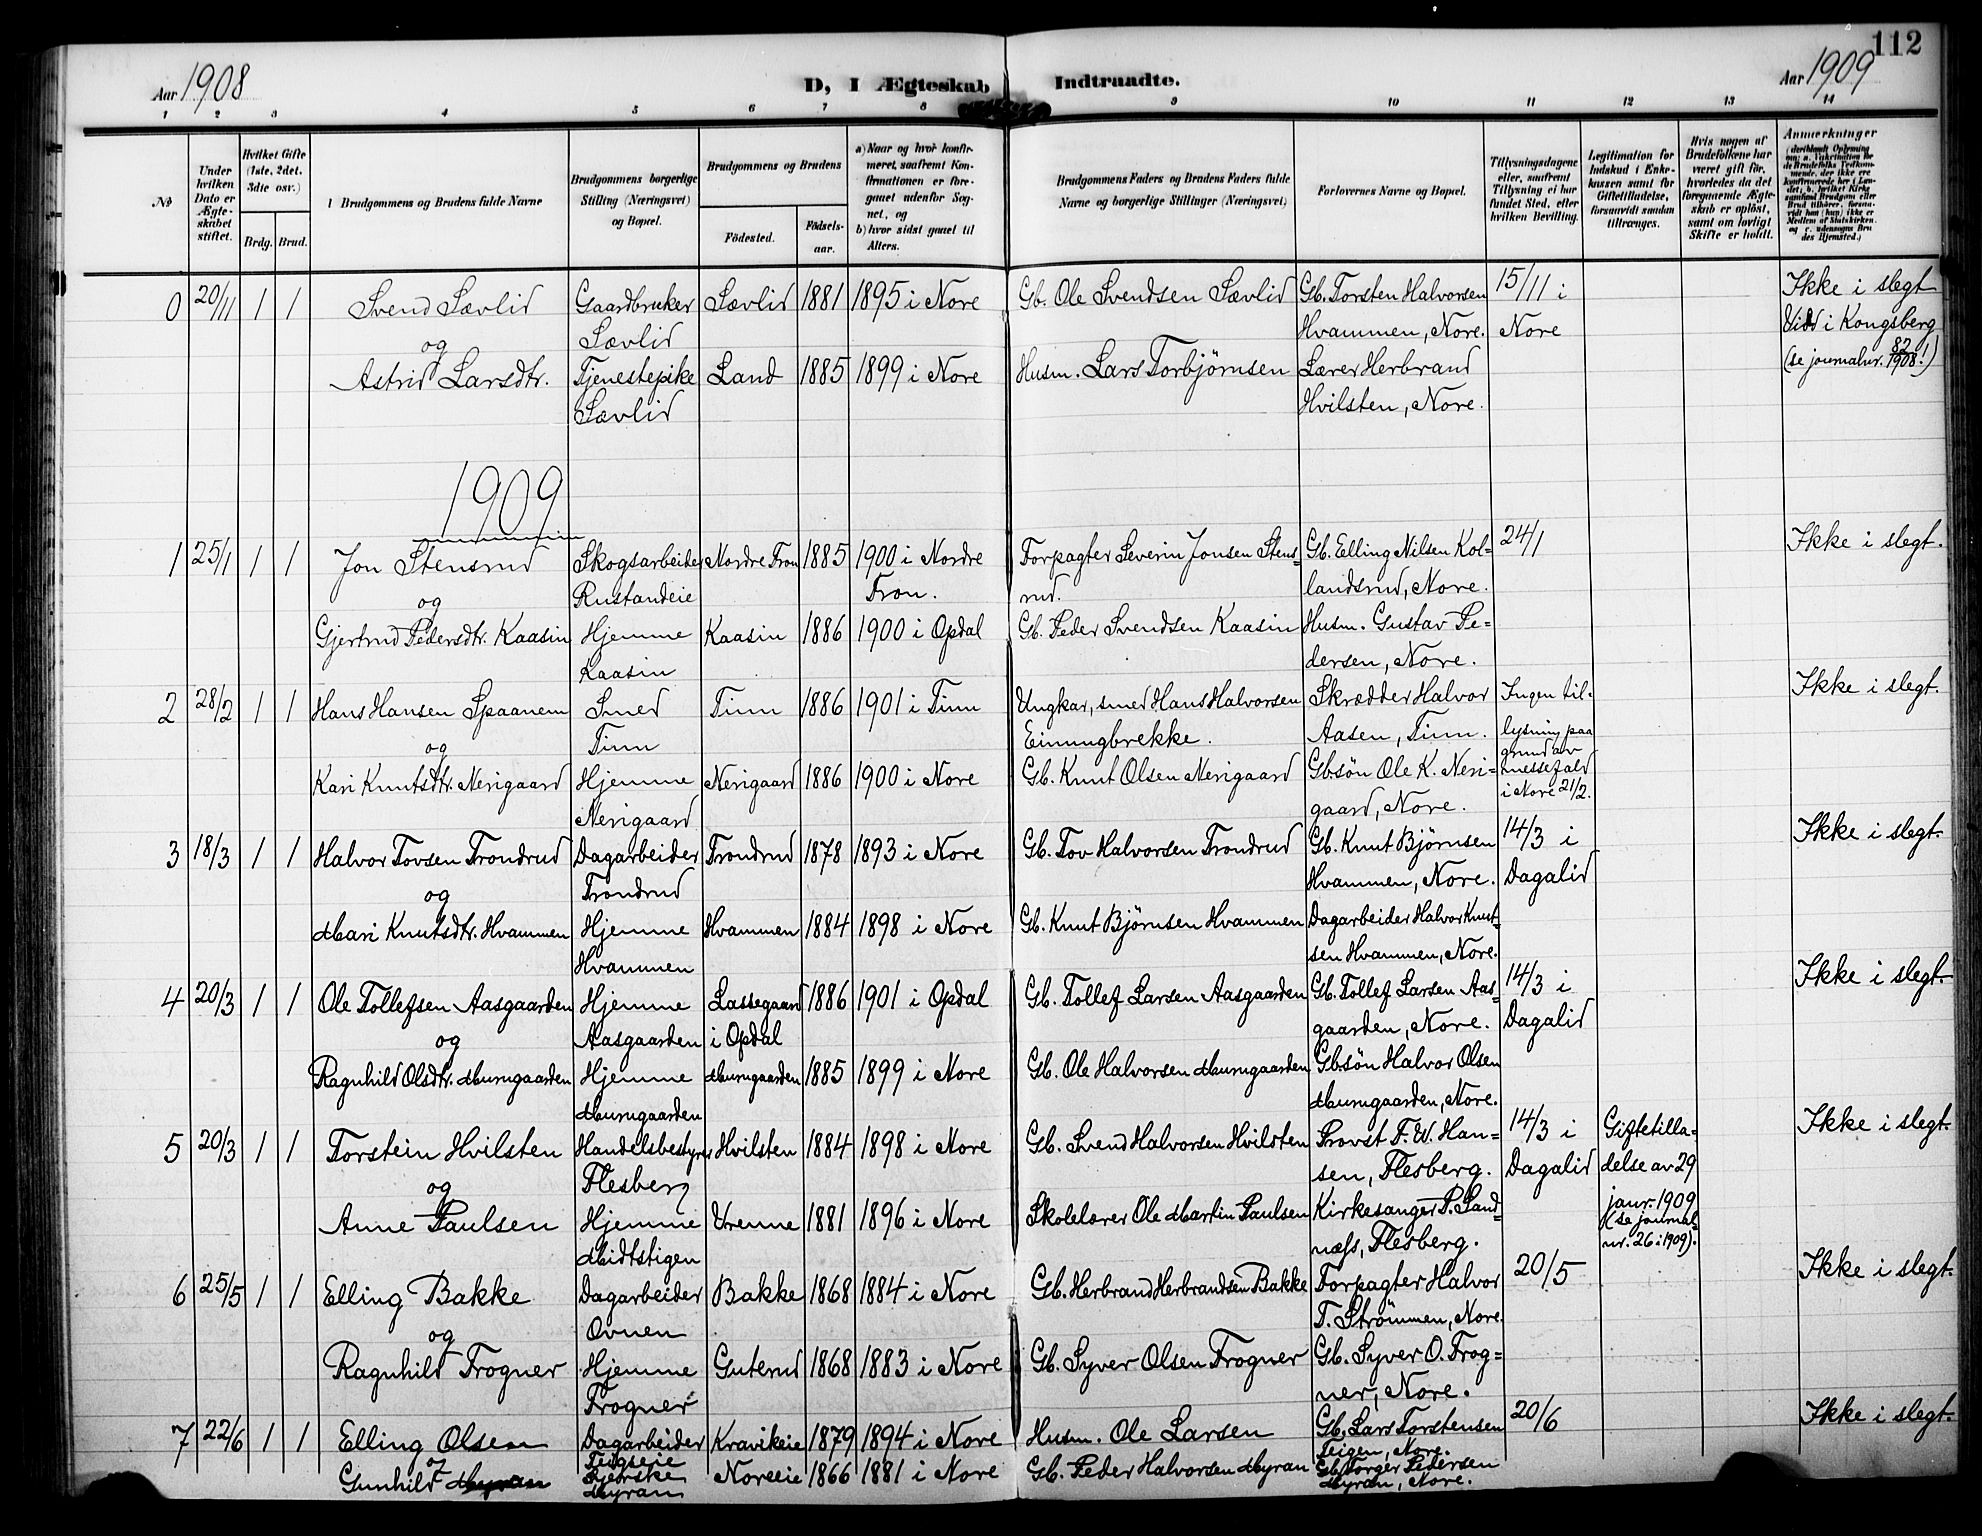 112
Aar 1908 D, I Ægteskab Indtraadte. Aar 1909
1 2 3 4 5 6 7 8 9 10 11 12 13 14
No
Under hvilken Dato er Ægteskabet stiftet.
Hvilket Gifte (1ste, 2det, 3die osv.)
Brdg. Brud.
Brudgommens og Brudens fulde Navne
Brudgommens borgerlige Stilling (Næringsvei) og Bopæl.
Brudgommens og Brudens
Födested. Födsels-aar.
a) Naar og hvor konfirmeret, saafremt Konfirmationen er foregaaet udenfor Sognet, og
b) hvor sidst gaaet til Alters.
Brudgommens Faders og Brudens Faders fulde Navne og borgerlige Stillinger (Næringsvei)
Forlovernes Navne og Bopæl.
Tillysningsdagene eller, saafremt Tillysning ei har fundet Sted, efter hvilken Bevilling.
Legitimation for Indskud i Enkekassen samt for Giftetilladelse, forsaavidt saadan tiltrænges.
Hvis nogen af Brudefolkene har været gift för, hvorledes da det foregaaende Ægteskab er oplöst, samt om lovligt Skifte er holdt.
Anmerkninger
0 20/11 1 1 Svend Sævlid Gaardbruker Sævlid 1881 1895 i Nore Gb. Ole Svendsen Sævlid Gb. Torsten Halvorsen 15/11 i Ikke i slegt
og Sævlid Hvammen, Nore. Nore Viet i Kongsberg
Astrid Larsdtr. Tjenestepike Land 1885 1899 i Nore Husm. Lars Torbjørnsen Lærer Herbrand (se journalnr. 82/1908!)
Sævlid Hvilsten, Nore.
1909
1 25/1 1 1 Jon Stensrud Skogsarbeider Nordre Fron 1885 1900 i Nordre Forpagter Severin Jonsen Stens- Gb. Elling Nilsen Kol- 24/1 Ikke i slegt.
og Rustandeie Fron. rud. landsrud, Nore.
Gjertrud Pedersdtr. Kaasin Hjemme Kaasin 1886 1900 i Opdal Gb. Peder Svendsen Kaasin Husm. Gustav Pe-
Kaasin dersen, Nore.
2 28/2 1 1 Hans Hansen Spaanem Smed Tinn 1886 1901 i Tinn Ungkar, smed Hans Halvorsen Skrædder Halvor Ingen til- Ikke i slegt.
og Tinn Einungbrekke. Aasen, Tinn. lysning paa grund av
Kari Knutsdtr. Nerigaard Hjemme Nerigaard 1886 1900 i Nore Gb. Knut Olsen Nerigaard Gbsøn Ole K. Neri- messefald
Nerigaard gaard, Nore. i Nore 21/2.
3 18/3 1 1 Halvor Tovsen Trondrud Dagarbeider Trondrud 1878 1893 i Nore Gb. Tov Halvorsen Trondrud Gb. Knut Bjørnsen 14/3 i Ikke i slegt.
og Trondrud Hvammen, Nore. Dagalid
Mari Knutsdtr. Hvammen Hjemme Hvammen 1884 1898 i Nore Gb. Knut Bjørnsen Hvammen Dagarbeider Halvor Knut-
Hvammen sen Hvammen, Nore.
4 20/3 1 1 Ole Tollefsen Aasgaarden Hjemme Lassegaard 1886 1901 i Opdal Gb. Tollef Larsen Aasgaarden Gb. Tollef Larsen Aas- 14/3 i Ikke i slegt.
og Aasgaarden i Opdal gaarden, Nore. Dagalid
Ragnhild Olsdtr. Murugaarden Hjemme Murugaarden 1885 1899 i Nore Gb. Ole Halvorsen Murugaarden Gbsön Halvor Olsen
Murugaarden Murugaarden, Nore.
5 20/3 1 1 Torstein Hvilsten Handelsbestyrer Hvilsten 1884 1898 i Nore Gb. Svend Halvorsen Hvilsten Provst F. W. Han- 14/3 i Giftetilla- Ikke i slegt.
og Flesberg sen, Flesberg. Dagalid delse av 29
Anne Paulsen Hjemme Vrenne 1881 1896 i Nore Skolelærer Ole Martin Paulsen Kirkesanger P. Sand- janr. 1909
Midtstigen næss, Flesberg. (se journal-nr. 26 i 1909).
6 25/5 1 1 Elling Bakke Dagarbeider Bakke 1868 1884 i Nore Gb. Herbrand Herbrandsen Bakke Forpagter Halvor 20/5 Ikke i slegt.
og Ovnen T. Strömmen, Nore.
Ragnhild Frogner Hjemme Guterud 1868 1883 i Nore Gb. Syver Olsen Frogner Gb. Syver O. Frog-
Frogner ner, Nore.
7 22/6 1 1 Elling Olsen Dagarbeider Kravikeie 1879 1894 i Nore Husm. Ole Larsen Gb. Lars Torstensen 20/6 Ikke i slegt.
og Teigseie Teigen, Nore.
Gunhild Myran Syerske Noreeie 1866 1881 i Nore Gb. Peder Halvorsen Myran Gb. Torger Pedersen
Myran Myran, Nore.